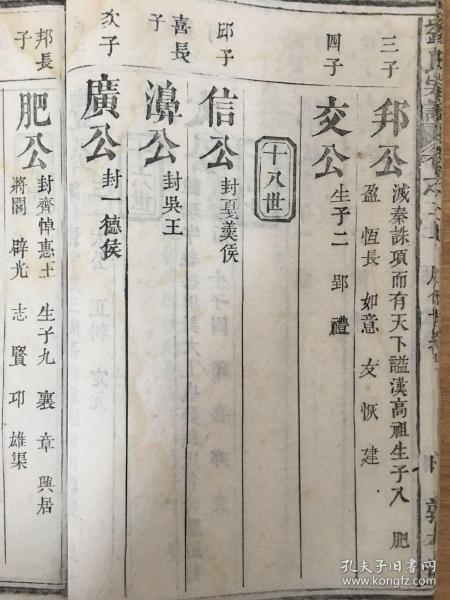 三子
邦公
滅秦誅項而有天下謚漢高祖生子八 肥
盈 恆長 如意 友 恢 建
四子
交公
生子二 郢 禮
十八世
邱子
信公
封戛羹侯
喜長子
濞公
封吳王
次子
廣公
封一德侯
邦長子
肥公
封齊悼惠王 生子九 襄 章 興居
將閭 辟光 志 賢 卭 雄渠
孔夫子旧书网
www.kongfz.com